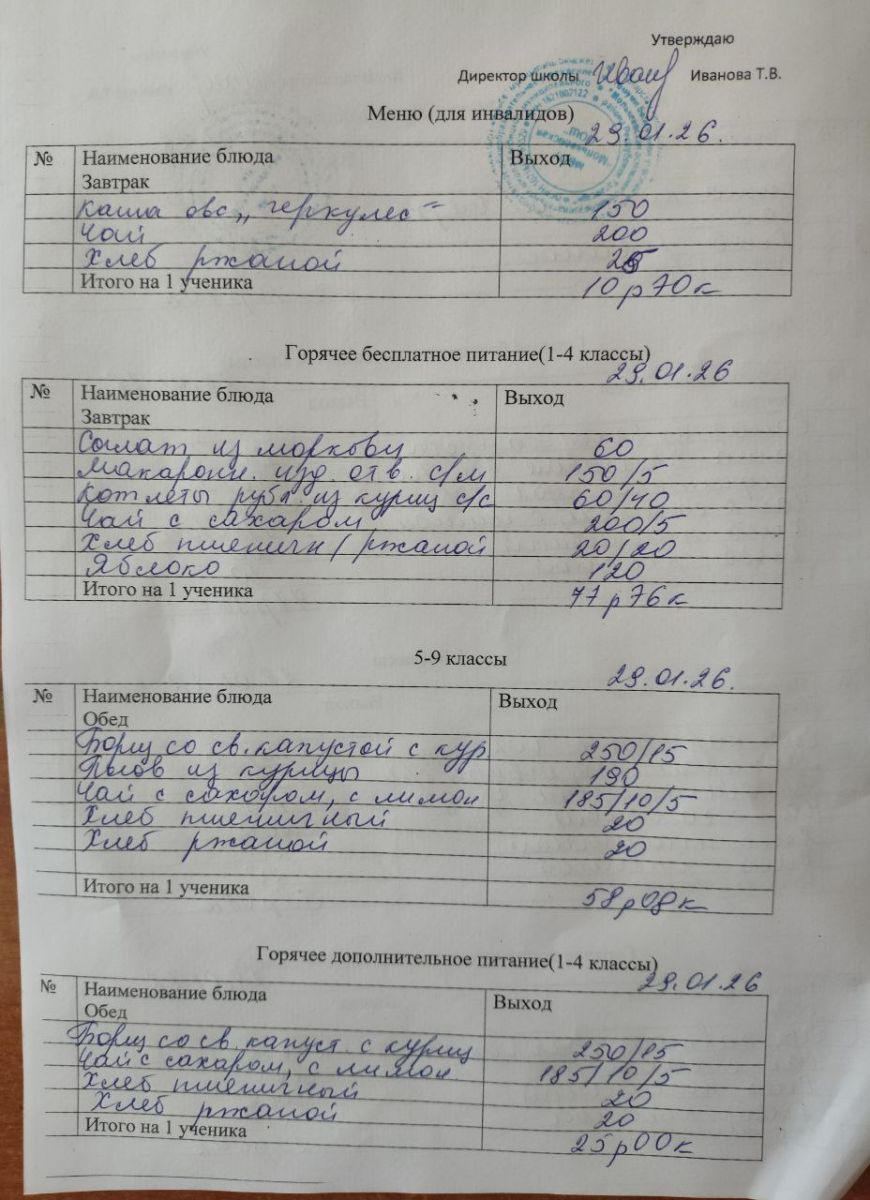 Утверждаю
Директор школы Иванова Т.В.
Меню (для инвалидов)
29.01.26.
№ Наименование блюда Выход
Завтрак
Каша овс „геркулес" 150
Чай 200
Хлеб ржаной 25
Итого на 1 ученика 10р70к
Горячее бесплатное питание(1-4 классы)
29.01.26
№ Наименование блюда Выход
Завтрак
Салат из моркови 60
Макарон. изд. отв. с/м 150/5
Котлеты рубл. из куриц с/с 60/40
Чай с сахаром 200/5
Хлеб пшеничн / ржаной 20/20
Яблоко 120
Итого на 1 ученика 77р76к
5-9 классы
29.01.26.
№ Наименование блюда Выход
Обед
Борщ со св.капустой с кур 250/15
Плов из курицы 190
Чай с сахаром, с лимон 185/10/5
Хлеб пшеничный 20
Хлеб ржаной 20
Итого на 1 ученика 58р08к
Горячее дополнительное питание(1-4 классы)
29.01.26
№ Наименование блюда Выход
Обед
Борщ со св. капуст. с куриц 250/15
Чай с сахаром, с лимон 185/10/5
Хлеб пшеничный 20
Хлеб ржаной 20
Итого на 1 ученика 25р00к